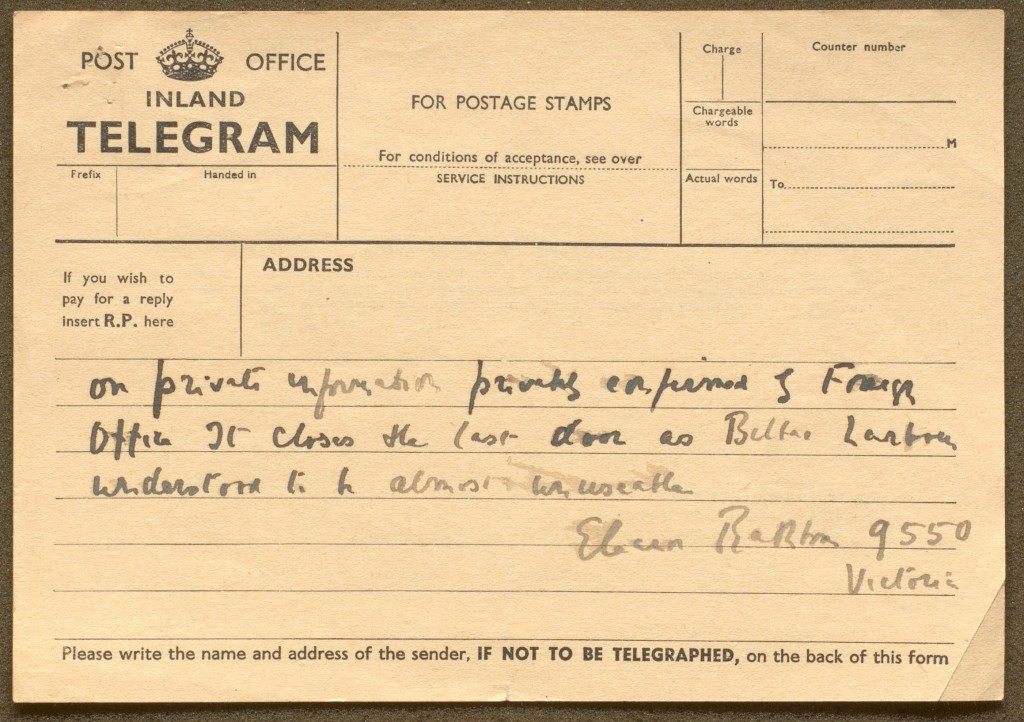 POST OFFICE
INLAND
TELEGRAM
Prefix
Handed in
FOR POSTAGE STAMPS
For conditions of acceptance, see over
SERVICE INSTRUCTIONS
Charge
Chargeable
words
Actual words
Counter number
M
To
If you wish to
pay for a reply
insert R.P. here
ADDRESS
on private information privately confirmed by Foreign
Office It closes the last door as Harbour
understood to be almost unuseable
Rathbone 9550
Victoria
Please write the name and address of the sender, IF NOT TO BE TELEGRAPHED, on the back of this form